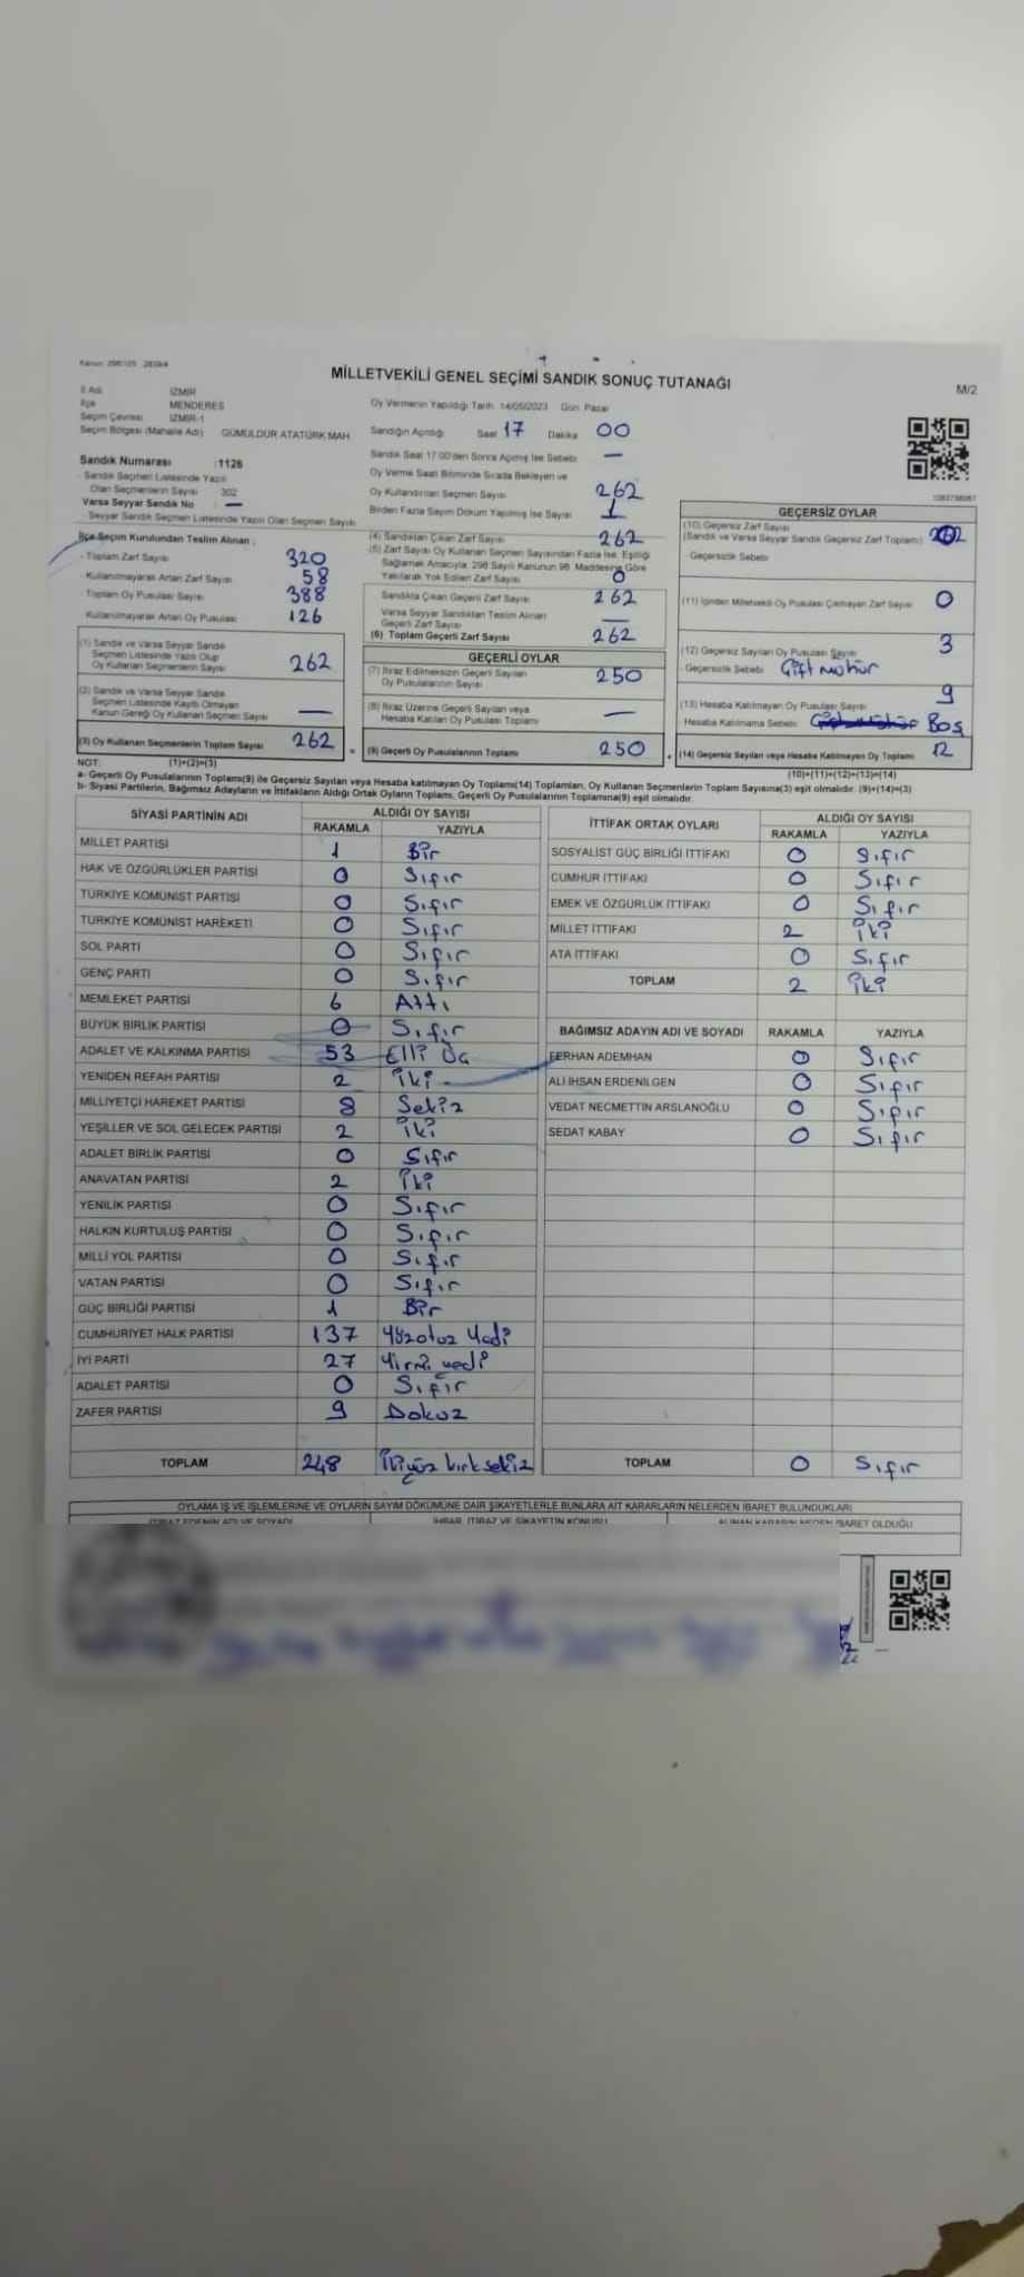 MİLLETVEKİLİ GENEL SEÇİMİ SANDIK SONUÇ TUTANAĞI
M/2
İl Adı İZMİR
İlçe MENDERES
Seçim Çevresi İZMİR-1
Seçim Bölgesi (Mahalle Adı) GÜMÜLDÜR ATATÜRK MAH
Sandık Numarası :1126
Sandık Seçmen Listesinde Yazılı
Olan Seçmenlerin Sayısı 302
Varsa Seyyar Sandık No —
Seyyar Sandık Seçmen Listesinde Yazılı Olan Seçmen Sayısı
Oy Vermenin Yapıldığı Tarih 14/05/2023 Gün Pazar
Sandığın Açıldığı Saat 17 Dakika 00
Sandık Saat 17:00'den Sonra Açılmış İse Sebebi —
Oy Verme Saati Bitiminde Sırada Bekleyen ve
Oy Kullandırılan Seçmen Sayısı 262
Birden Fazla Sayım Döküm Yapılmış İse Sayısı 1
İlçe Seçim Kurulundan Teslim Alınan ;
- Toplam Zarf Sayısı 320
- Kullanılmayarak Artan Zarf Sayısı 58
Toplam Oy Pusulası Sayısı 388
Kullanılmayarak Artan Oy Pusulası 126
(1) Sandık ve Varsa Seyyar Sandık
Seçmen Listesinde Yazılı Olup
Oy Kullanan Seçmenlerin Sayısı 262
(2) Sandık ve Varsa Seyyar Sandık
Seçmen Listesinde Kayıtlı Olmayan
Kanun Gereği Oy Kullanan Seçmen Sayısı —
(3) Oy Kullanan Seçmenlerin Toplam Sayısı 262
(1)+(2)=(3)
(4) Sandıktan Çıkan Zarf Sayısı 262
(5) Zarf Sayısı Oy Kullanan Seçmen Sayısından Fazla İse, Eşitliği
Sağlamak Amacıyla, 298 Sayılı Kanunun 98. Maddesine Göre
Yakılarak Yok Edilen Zarf Sayısı 0
Sandıkta Çıkan Geçerli Zarf Sayısı 262
Varsa Seyyar Sandıktan Teslim Alınan
Geçerli Zarf Sayısı —
(6) Toplam Geçerli Zarf Sayısı 262
GEÇERLİ OYLAR
(7) İtiraz Edilmeksizin Geçerli Sayılan
Oy Pusulalarının Sayısı 250
(8) İtiraz Üzerine Geçerli Sayılan veya
Hesaba Katılan Oy Pusulası Toplamı —
(9) Geçerli Oy Pusulalarının Toplamı 250
GEÇERSİZ OYLAR
(10) Geçersiz Zarf Sayısı
(Sandık ve Varsa Seyyar Sandık Geçersiz Zarf Toplamı)
Geçersizlik Sebebi
(11) İçinden Milletvekili Oy Pusulası Çıkmayan Zarf Sayısı 0
(12) Geçersiz Sayılan Oy Pusulası Sayısı 3
Geçersizlik Sebebi Çift Mühür
(13) Hesaba Katılmayan Oy Pusulası Sayısı 9
Hesaba Katılmama Sebebi Boş
(14) Geçersiz Sayılan veya Hesaba Katılmayan Oy Toplamı 12
(10)+(11)+(12)+(13)=(14)
NOT:
a- Geçerli Oy Pusulalarının Toplamı(9) ile Geçersiz Sayılan veya Hesaba katılmayan Oy Toplamı(14) Toplamları, Oy Kullanan Seçmenlerin Toplam Sayısına(3) eşit olmalıdır. (9)+(14)=(3)
b- Siyasi Partilerin, Bağımsız Adayların ve İttifakların Aldığı Ortak Oyların Toplamı, Geçerli Oy Pusulalarının Toplamına(9) eşit olmalıdır.
SİYASİ PARTİNİN ADI ALDIĞI OY SAYISI
RAKAMLA YAZIYLA
MİLLET PARTİSİ 1 Bir
HAK VE ÖZGÜRLÜKLER PARTİSİ 0 Sıfır
TÜRKİYE KOMÜNİST PARTİSİ 0 Sıfır
TÜRKİYE KOMÜNİST HAREKETİ 0 Sıfır
SOL PARTİ 0 Sıfır
GENÇ PARTİ 0 Sıfır
MEMLEKET PARTİSİ 6 Altı
BÜYÜK BİRLİK PARTİSİ 0 Sıfır
ADALET VE KALKINMA PARTİSİ 53 Elli Üç
YENİDEN REFAH PARTİSİ 2 İki
MİLLİYETÇİ HAREKET PARTİSİ 8 Sekiz
YEŞİLLER VE SOL GELECEK PARTİSİ 2 İki
ADALET BİRLİK PARTİSİ 0 Sıfır
ANAVATAN PARTİSİ 2 İki
YENİLİK PARTİSİ 0 Sıfır
HALKIN KURTULUŞ PARTİSİ 0 Sıfır
MİLLİ YOL PARTİSİ 0 Sıfır
VATAN PARTİSİ 0 Sıfır
GÜÇ BİRLİĞİ PARTİSİ 1 Bir
CUMHURİYET HALK PARTİSİ 137 Yüzotuz Yedi
İYİ PARTİ 27 Yirmi yedi
ADALET PARTİSİ 0 Sıfır
ZAFER PARTİSİ 9 Dokuz
TOPLAM 248 İkiyüz kırk sekiz
İTTİFAK ORTAK OYLARI ALDIĞI OY SAYISI
RAKAMLA YAZIYLA
SOSYALİST GÜÇ BİRLİĞİ İTTİFAKI 0 Sıfır
CUMHUR İTTİFAKI 0 Sıfır
EMEK VE ÖZGÜRLÜK İTTİFAKI 0 Sıfır
MİLLET İTTİFAKI 2 İki
ATA İTTİFAKI 0 Sıfır
TOPLAM 2 İki
BAĞIMSIZ ADAYIN ADI VE SOYADI RAKAMLA YAZIYLA
FERHAN ADEMHAN 0 Sıfır
ALİ İHSAN ERDENİLGEN 0 Sıfır
VEDAT NECMETTİN ARSLANOĞLU 0 Sıfır
SEDAT KABAY 0 Sıfır
TOPLAM 0 Sıfır
OYLAMA İŞ VE İŞLEMLERİNE VE OYLARIN SAYIM DÖKÜMÜNE DAİR ŞİKAYETLERLE BUNLARA AİT KARARLARIN NELERDEN İBARET BULUNDUKLARI
İTİRAZ EDENİN ADI VE SOYADI İHBAR, İTİRAZ VE ŞİKAYETİN KONUSU ALINAN KARARIN NEDEN İBARET OLDUĞU